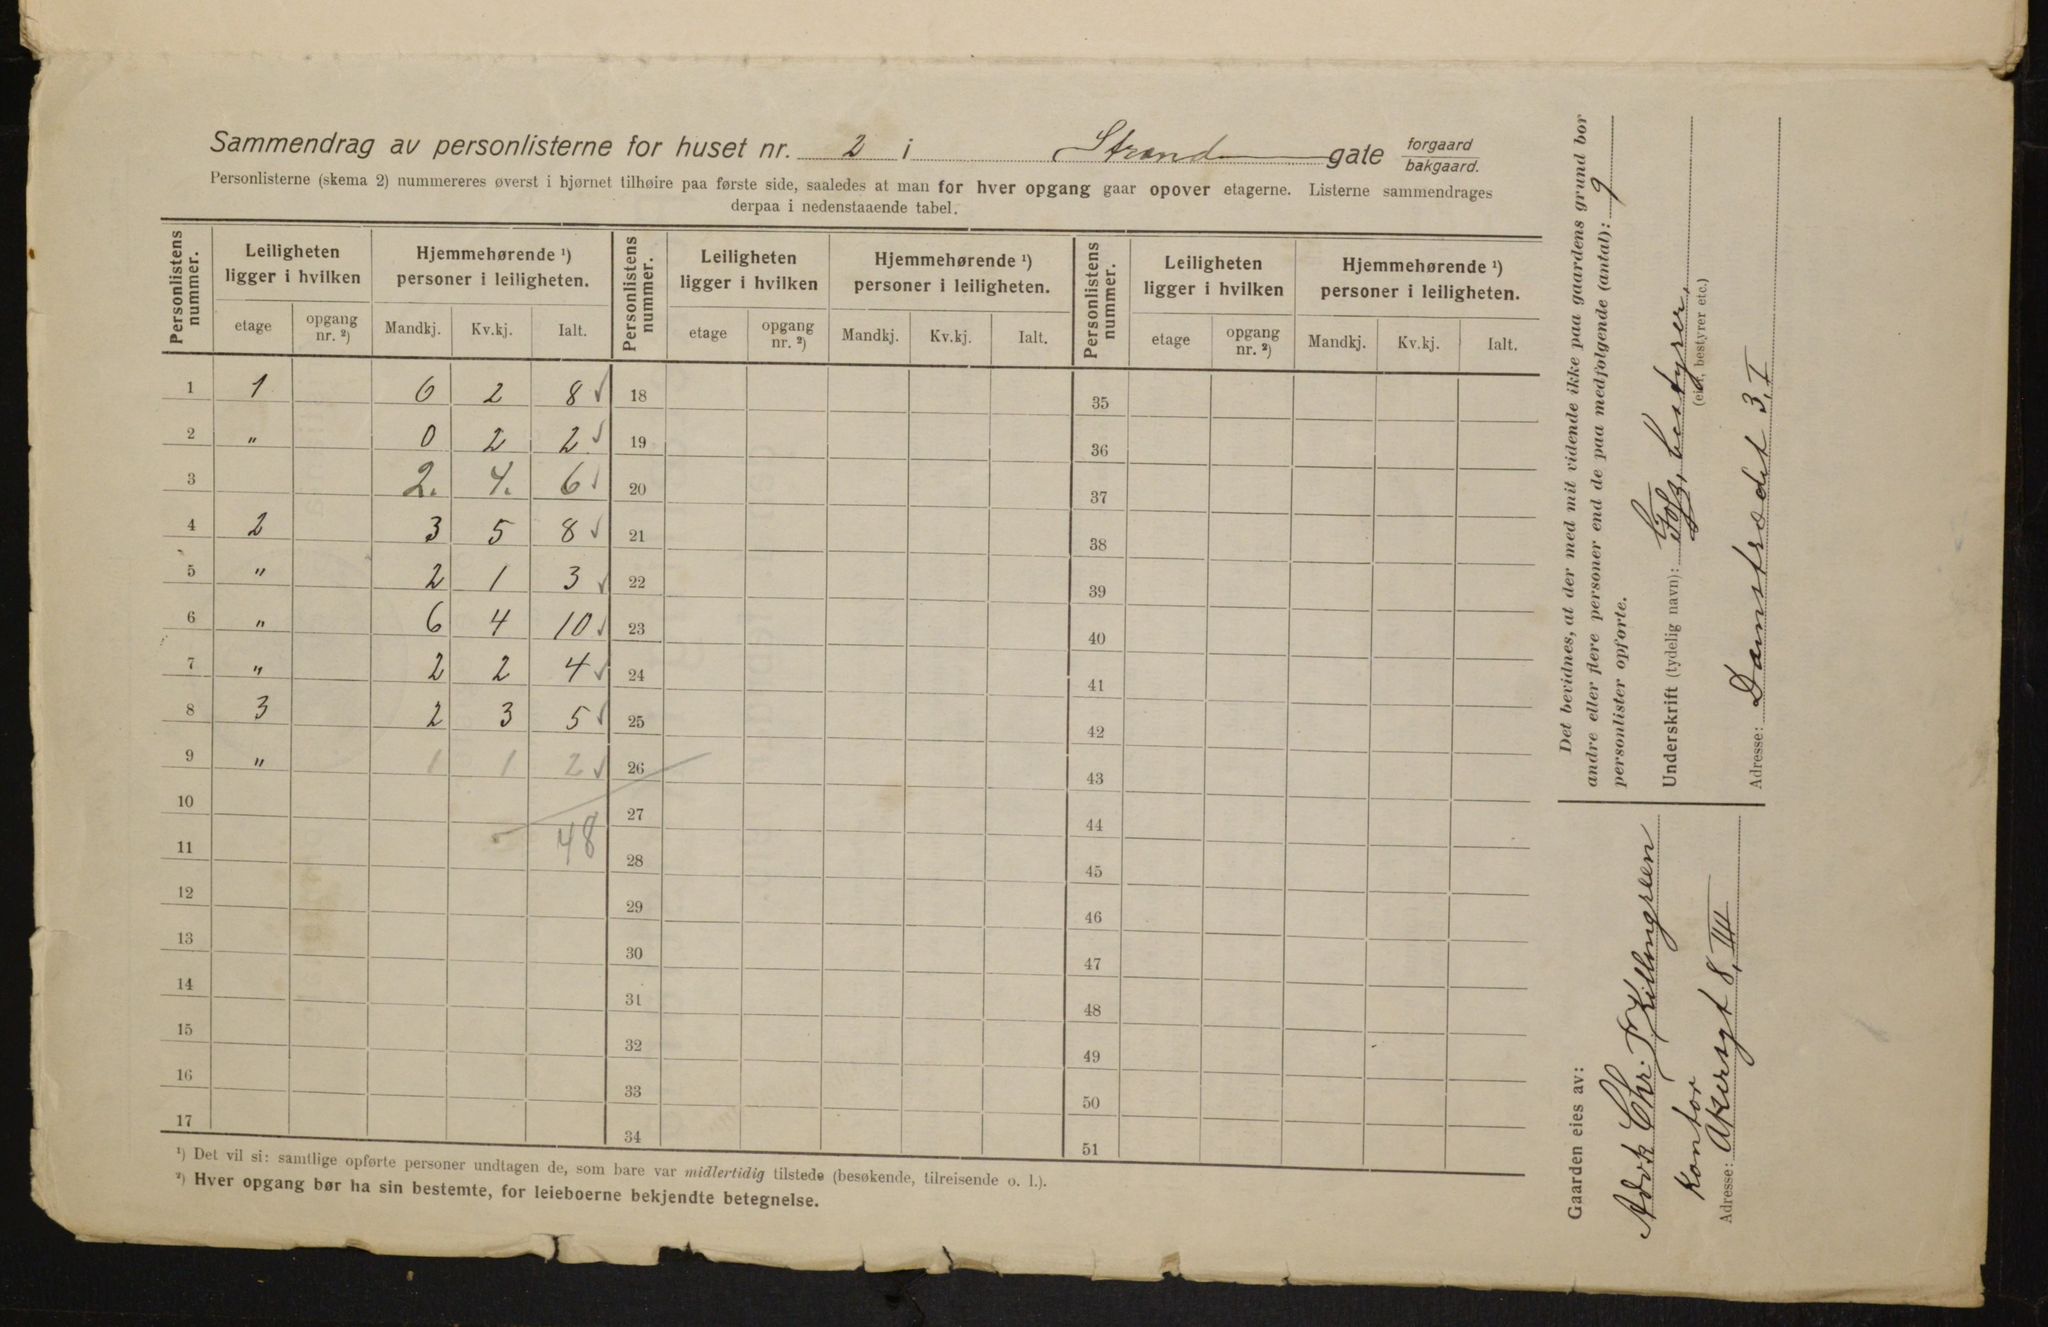 Sammendrag av personlisterne for huset nr. 2 i Strand gate forgaard bakgaard.
Personlisterne (skema 2) nummereres øverst i hjørnet tilhøire paa første side, saaledes at man for hver opgang gaar opover etagerne. Listerne sammendrages
derpaa i nedenstaaende tabel.
Personlistens nummer. Leiligheten ligger i hvilken Hjemmehørende ¹) personer i leiligheten. Personlistens nummer. Leiligheten ligger i hvilken Hjemmehørende ¹) personer i leiligheten. Personlistens nummer. Leiligheten ligger i hvilken Hjemmehørende ¹) personer i leiligheten.
etage opgang nr. ²) Mandkj. Kv.kj. Ialt. etage opgang nr. ²) Mandkj. Kv.kj. Ialt. etage opgang nr. ²) Mandkj. Kv.kj. Ialt.
1 1 6 2 8 ✓ 18 35
2 " 0 2 2 ✓ 19 36
3 2. 4. 6 ✓ 20 37
4 2 3 5 8 ✓ 21 38
5 " 2 1 3 ✓ 22 39
6 " 6 4 10 ✓ 23 40
7 " 2 2 4 ✓ 24 41
8 3 2 3 5 ✓ 25 42
9 " 1 1 2 ✓ 26 43
10 27 44
11 48 28 45
12 29 46
13 30 47
14 31 48
15 32 49
16 33 50
17 34 51
¹) Det vil si: samtlige opførte personer undtagen de, som bare var midlertidig tilstede (besøkende, tilreisende o. l.).
²) Hver opgang bør ha sin bestemte, for leieboerne bekjendte betegnelse.
Det bevidnes, at der med mit vidende ikke paa gaardens grund bor
andre eller flere personer end de paa medfølgende (antal): 9
personlister opførte.
Underskrift (tydelig navn): bestyrer,
(eier, bestyrer etc.)
Adresse: Damstrædet 3, I
Gaarden eies av:
Advk Chr. Killengreen
Kontor
Adresse: Akersgt 8, III